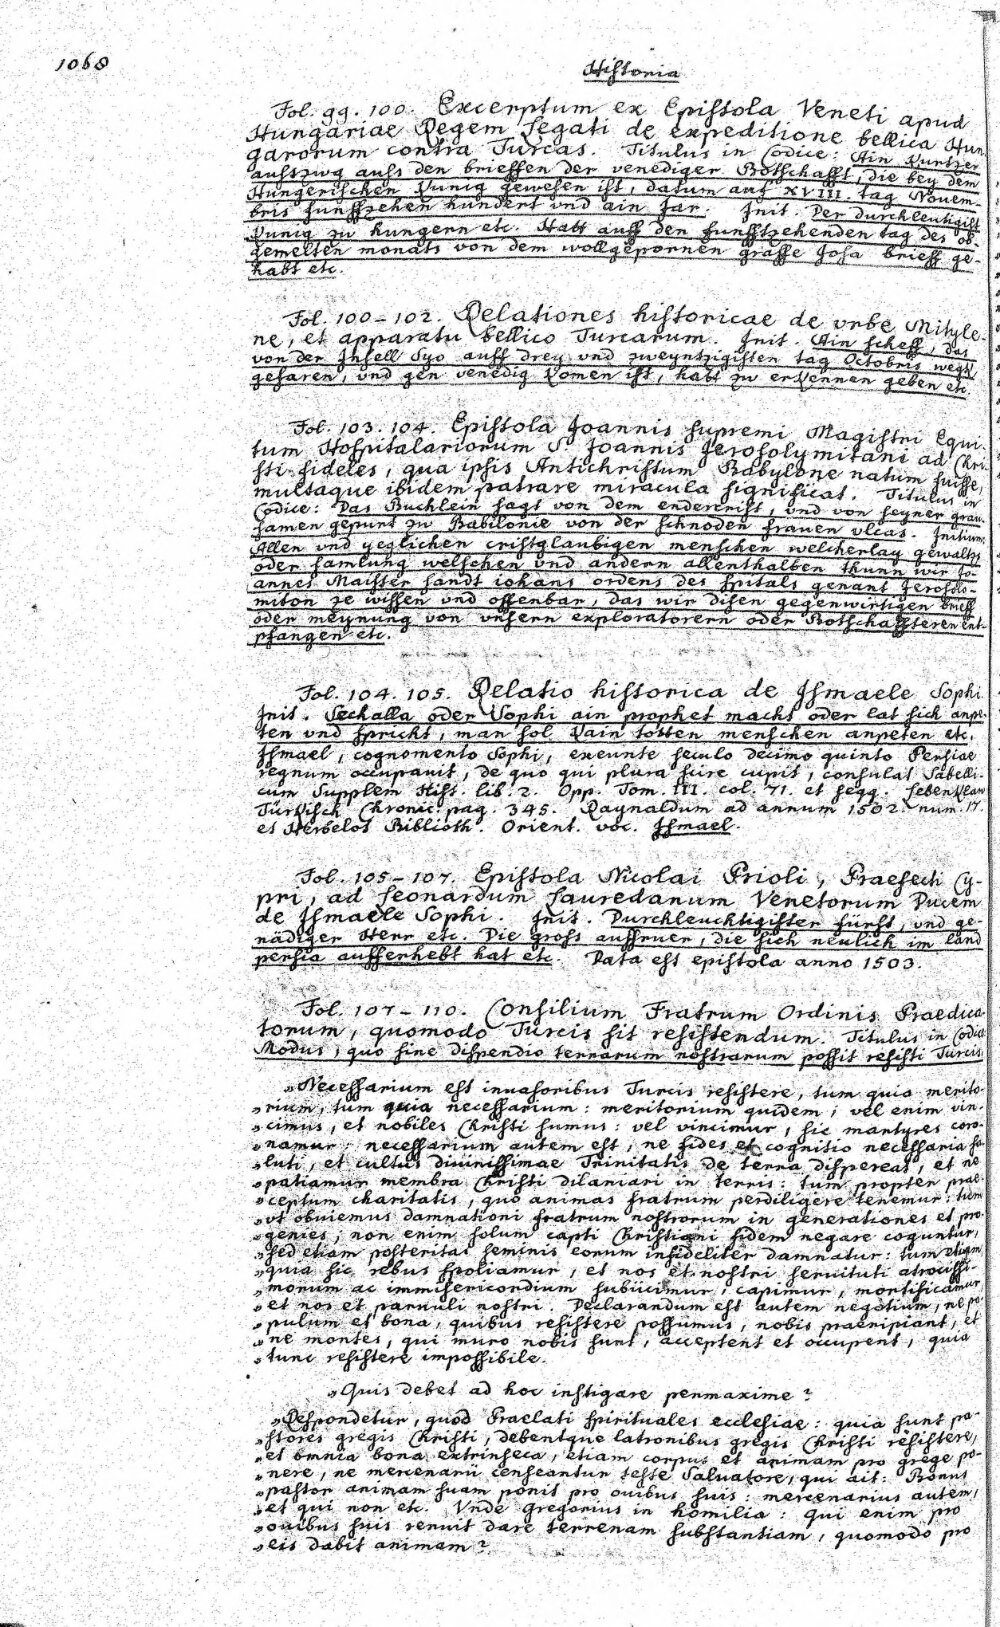 1068
Historia
Fol. 99. 100. Excerptum ex Epistola Veneti apud
Hungariae Regem Legati de expeditione bellica Hun-
garorum contra Turcas. Titulus in Codice: Ain kurtzer
ausszwg auss den brieffen der venediger Botschafft, die bey dem
Hungerischen kunig gewesen ist, datum auf XVIII. tag Novem-
bris funffzehen hundert und ain Jar. Init. Der durchleuchtigist
kunig zu hungern etc. Hatt auff den funfftzehenden tag des ob-
gemelten monats von dem wollgepornen graffe Josa brieff ge-
habt etc.
Fol. 100-102. Relationes historicae de vrbe Mityle-
ne, et apparatu bellico Turcarum. Init. Ain scheff, das
von der Insell Syo auff drey und zweyntzigisten tag Octobris wegk
gefaren, vnd gen venedig komen ist, habt zu erkennen geben etc.
Fol. 103. 104. Epistola Joannis supremi Magistri Equi-
tum Hospitalariorum S. Joannis Jerosolymitani ad Chri-
sti fideles, qua ipsis Antichristum Babylone natum fuisse,
multaque ibidem patrare miracula significat. Titulus in
Codice: Das Buchlein sagt von dem endercrist, vnd von seyner grau-
samen gepurt zu Babilonie von der schnoden frauen vlcas. Initium:
Allen vnd yeglichen cristglaubigen menschen welcherlay gewaltz
oder samlung welschen vnd andern allenthalben thunn wir Jo-
annes Maister sandt iohans ordens des spitals genant Jeroso-
miton ze wissen vnd offenbar, das wir disen gegenwirtigen brieff
oder meynung von vnsern exploratorern oder Botschaffteren ent-
pfangen etc.
Fol. 104. 105. Relatio historica de Ismaele Sophi.
Init. Sechalla oder Sophi ain prophet macht oder lat sich anpe-
ten vnd spricht, man sol kain totten menschen anpeten etc.
Ismael, cognomento Sophi, exeunte seculo decimo quinto Persiae
regnum occupauit, de quo qui plura scire cupit, consulat Sabelli-
cum Supplem Hist. lib. 2. Opp. Tom. III. col. 71. et seqq. Lebenklaw
Türkisch Chronic. pag. 345. Raynaldum ad annum 1502. num. 17.
et Herbelot Biblioth. Orient. voc. Ismael.
Fol. 105-107. Epistola Nicolai Prioli, Praefecti Cy-
pri, ad Leonardum Lauredanum Venetorum Ducem
de Ismaele Sophi. Init. Durchleuchtigister fürst, vnd ge-
nädiger Herr etc. Die gross auffruer, die sich neulich im land
persia aufferhebt hat etc. Data est epistola anno 1503.
Fol. 107-110. Consilium Fratrum Ordinis Praedica-
torum, quomodo Turcis sit resistendum. Titulus in Codice
Modus, quo sine dispendio terrarum nostrarum possit resisti Turcis.
»Necessarium est inuasoribus Turcis resistere, tum quia merito-
»rium, tum quia necessarium: meritorium quidem; vel enim vin-
»cimus, et nobiles Christi sumus: vel vincimur, sic martyres coro-
»namur: necessarium autem est, ne fides et cognitio necessaria sa-
»luti, et cultus diuinissimae Trinitatis de terra dispereat, et ne
»patiamur membra Christi dilaniari in terris: tum propter prae-
»ceptum charitatis, quo animas fratrum perdiligere tenemur: tum
»vt obuiemus damnationi fratrum nostrorum in generationes et pro-
»genies; non enim solum capti Christiani fidem negare coguntur,
»sed etiam posteritas seminis eorum infideliter damnatur: tum etiam,
»quia sic rebus spoliamur, et nos et nostri seruituti atrocissi-
»morum ac immisericordium subiicimur, capimur, mortificamur
»et nos et paruuli nostri. Declarandum est autem negotium, ne po-
»pulum et bona, quibus resistere possumus, nobis praeripiant, et
»ne montes, qui muro nobis sunt, acceptent et occupent, quia
»tunc resistere impossibile.
»Quis debet ad hoc instigare permaxime?
»Respondetur, quod Praelati spirituales ecclesiae: quia sunt pa-
»stores gregis Christi, debentque latronibus gregis Christi resistere,
»et omnia bona extrinseca, etiam corpus et animam pro grege po-
»nere, ne mercenarii censeantur teste Saluatore, qui ait: Bonus
»pastor animam suam ponit pro ouibus suis: mercenarius autem,
»et qui non etc. Vnde gregorius in homilia: qui enim pro
»ouibus suis renuit dare terrenam substantiam, quomodo pro
»eis dabit animam?